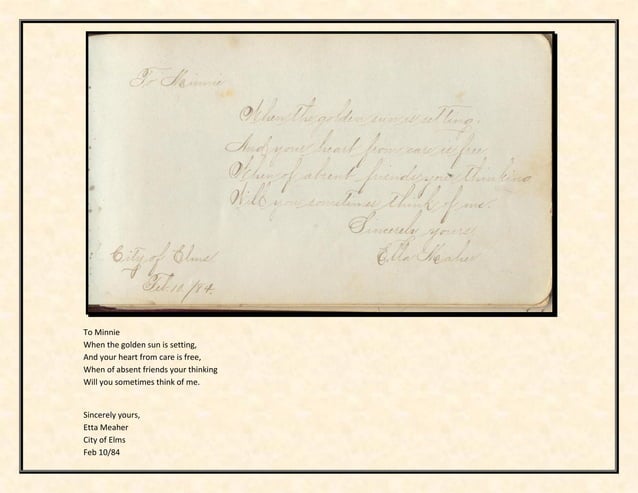 To Minnie
When the golden sun is setting.
And your heart from care is free
When of absent friends your thinking
Will you sometimes think of me.
Sincerely yours
Etta Meaher
City of Elms
Feb 10/84.
To Minnie
When the golden sun is setting,
And your heart from care is free,
When of absent friends your thinking
Will you sometimes think of me.
Sincerely yours,
Etta Meaher
City of Elms
Feb 10/84